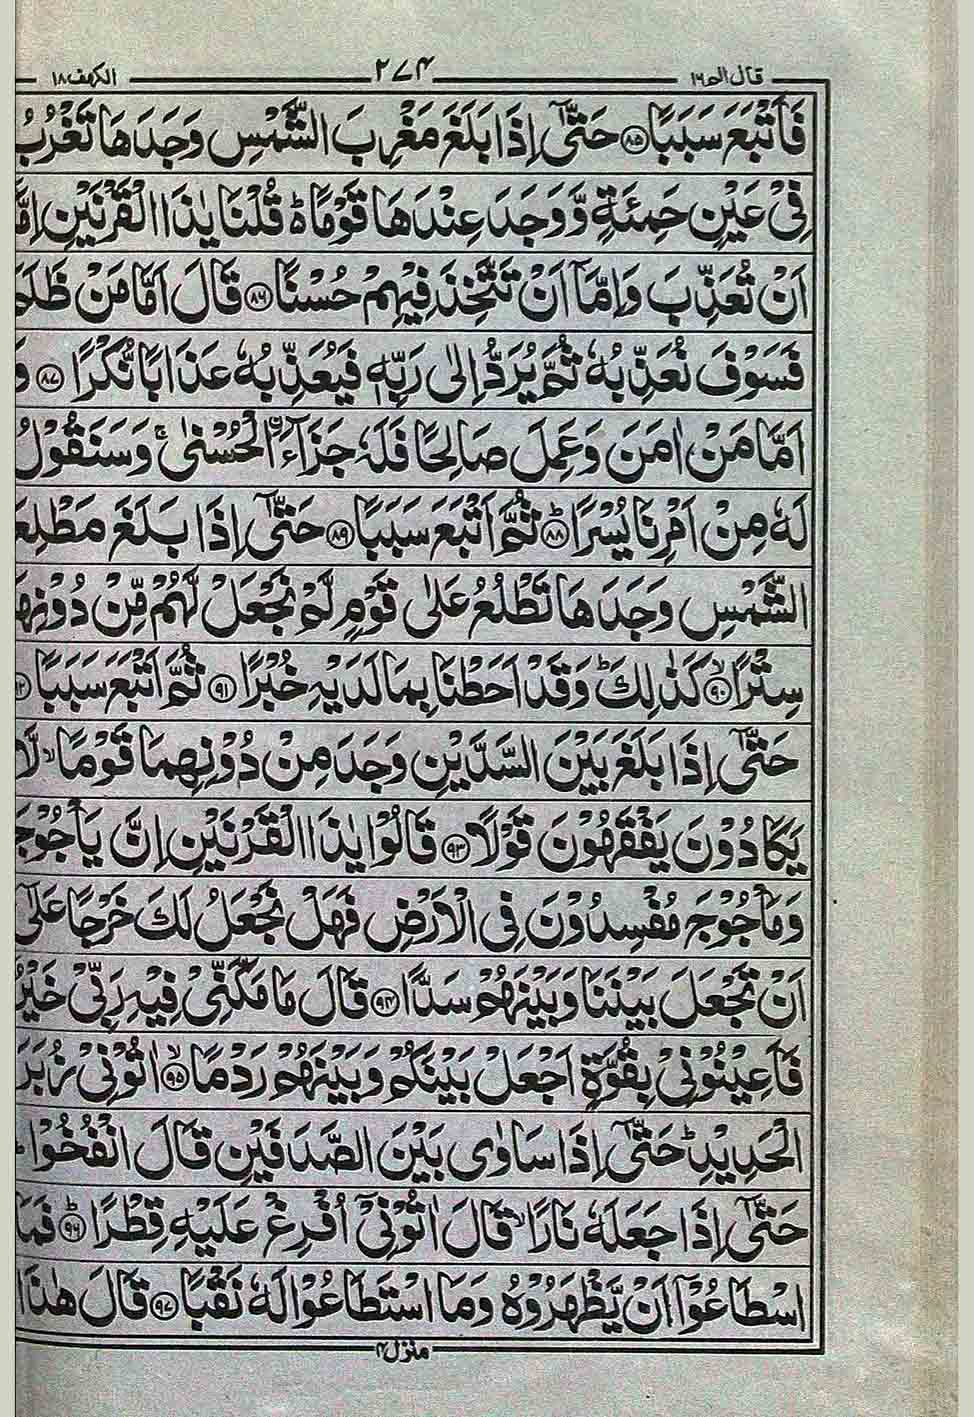 قال الم ١٦ ٢٧٤ الكهف ١٨
فَاَتْبَعَ سَبَبًا ﴿٨٥﴾ حَتّٰۤى اِذَا بَلَغَ مَغْرِبَ الشَّمْسِ وَجَدَهَا تَغْرُبُ
فِىْ عَيْنٍ حَمِئَةٍ وَّوَجَدَ عِنْدَهَا قَوْمًا ؕ قُلْنَا يٰذَا الْقَرْنَيْنِ اِمَّاۤ
اَنْ تُعَذِّبَ وَاِمَّاۤ اَنْ تَتَّخِذَ فِيْهِمْ حُسْنًا ﴿٨٦﴾ قَالَ اَمَّا مَنْ ظَلَمَ
فَسَوْفَ نُعَذِّبُهٗ ثُمَّ يُرَدُّ اِلٰى رَبِّهٖ فَيُعَذِّبُهٗ عَذَابًا نُّكْرًا ﴿٨٧﴾ وَ
اَمَّا مَنْ اٰمَنَ وَعَمِلَ صَالِحًا فَلَهٗ جَزَآءَۨ الْحُسْنٰى ۚ وَسَنَقُوْلُ
لَهٗ مِنْ اَمْرِنَا يُسْرًا ؕ﴿٨٨﴾ ثُمَّ اَتْبَعَ سَبَبًا ﴿٨٩﴾ حَتّٰۤى اِذَا بَلَغَ مَطْلِعَ
الشَّمْسِ وَجَدَهَا تَطْلُعُ عَلٰى قَوْمٍ لَّمْ نَجْعَلْ لَّهُمْ مِّنْ دُوْنِهَا
سِتْرًا ۙ﴿٩٠﴾ كَذٰلِكَ ؕ وَقَدْ اَحَطْنَا بِمَا لَدَيْهِ خُبْرًا ﴿٩١﴾ ثُمَّ اَتْبَعَ سَبَبًا ﴿٩٢﴾
حَتّٰۤى اِذَا بَلَغَ بَيْنَ السَّدَّيْنِ وَجَدَ مِنْ دُوْنِهِمَا قَوْمًا ۙ لَّا
يَكَادُوْنَ يَفْقَهُوْنَ قَوْلًا ﴿٩٣﴾ قَالُوْا يٰذَا الْقَرْنَيْنِ اِنَّ يَاْجُوْجَ
وَمَاْجُوْجَ مُفْسِدُوْنَ فِى الْاَرْضِ فَهَلْ نَجْعَلُ لَكَ خَرْجًا عَلٰۤى
اَنْ تَجْعَلَ بَيْنَنَا وَبَيْنَهُمْ سَدًّا ﴿٩٤﴾ قَالَ مَا مَكَّنِّىْ فِيْهِ رَبِّىْ خَيْرٌ
فَاَعِيْنُوْنِىْ بِقُوَّةٍ اَجْعَلْ بَيْنَكُمْ وَبَيْنَهُمْ رَدْمًا ۙ﴿٩٥﴾ اٰتُوْنِىْ زُبَرَ
الْحَدِيْدِ ؕ حَتّٰۤى اِذَا سَاوٰى بَيْنَ الصَّدَفَيْنِ قَالَ انْفُخُوْا ؕ
حَتّٰۤى اِذَا جَعَلَهٗ نَارًا ۙ قَالَ اٰتُوْنِىْۤ اُفْرِغْ عَلَيْهِ قِطْرًا ؕ﴿٩٦﴾ فَمَا
اسْطَاعُوْۤا اَنْ يَّظْهَرُوْهُ وَمَا اسْتَطَاعُوْا لَهٗ نَقْبًا ﴿٩٧﴾ قَالَ هٰذَا
منزل ٤